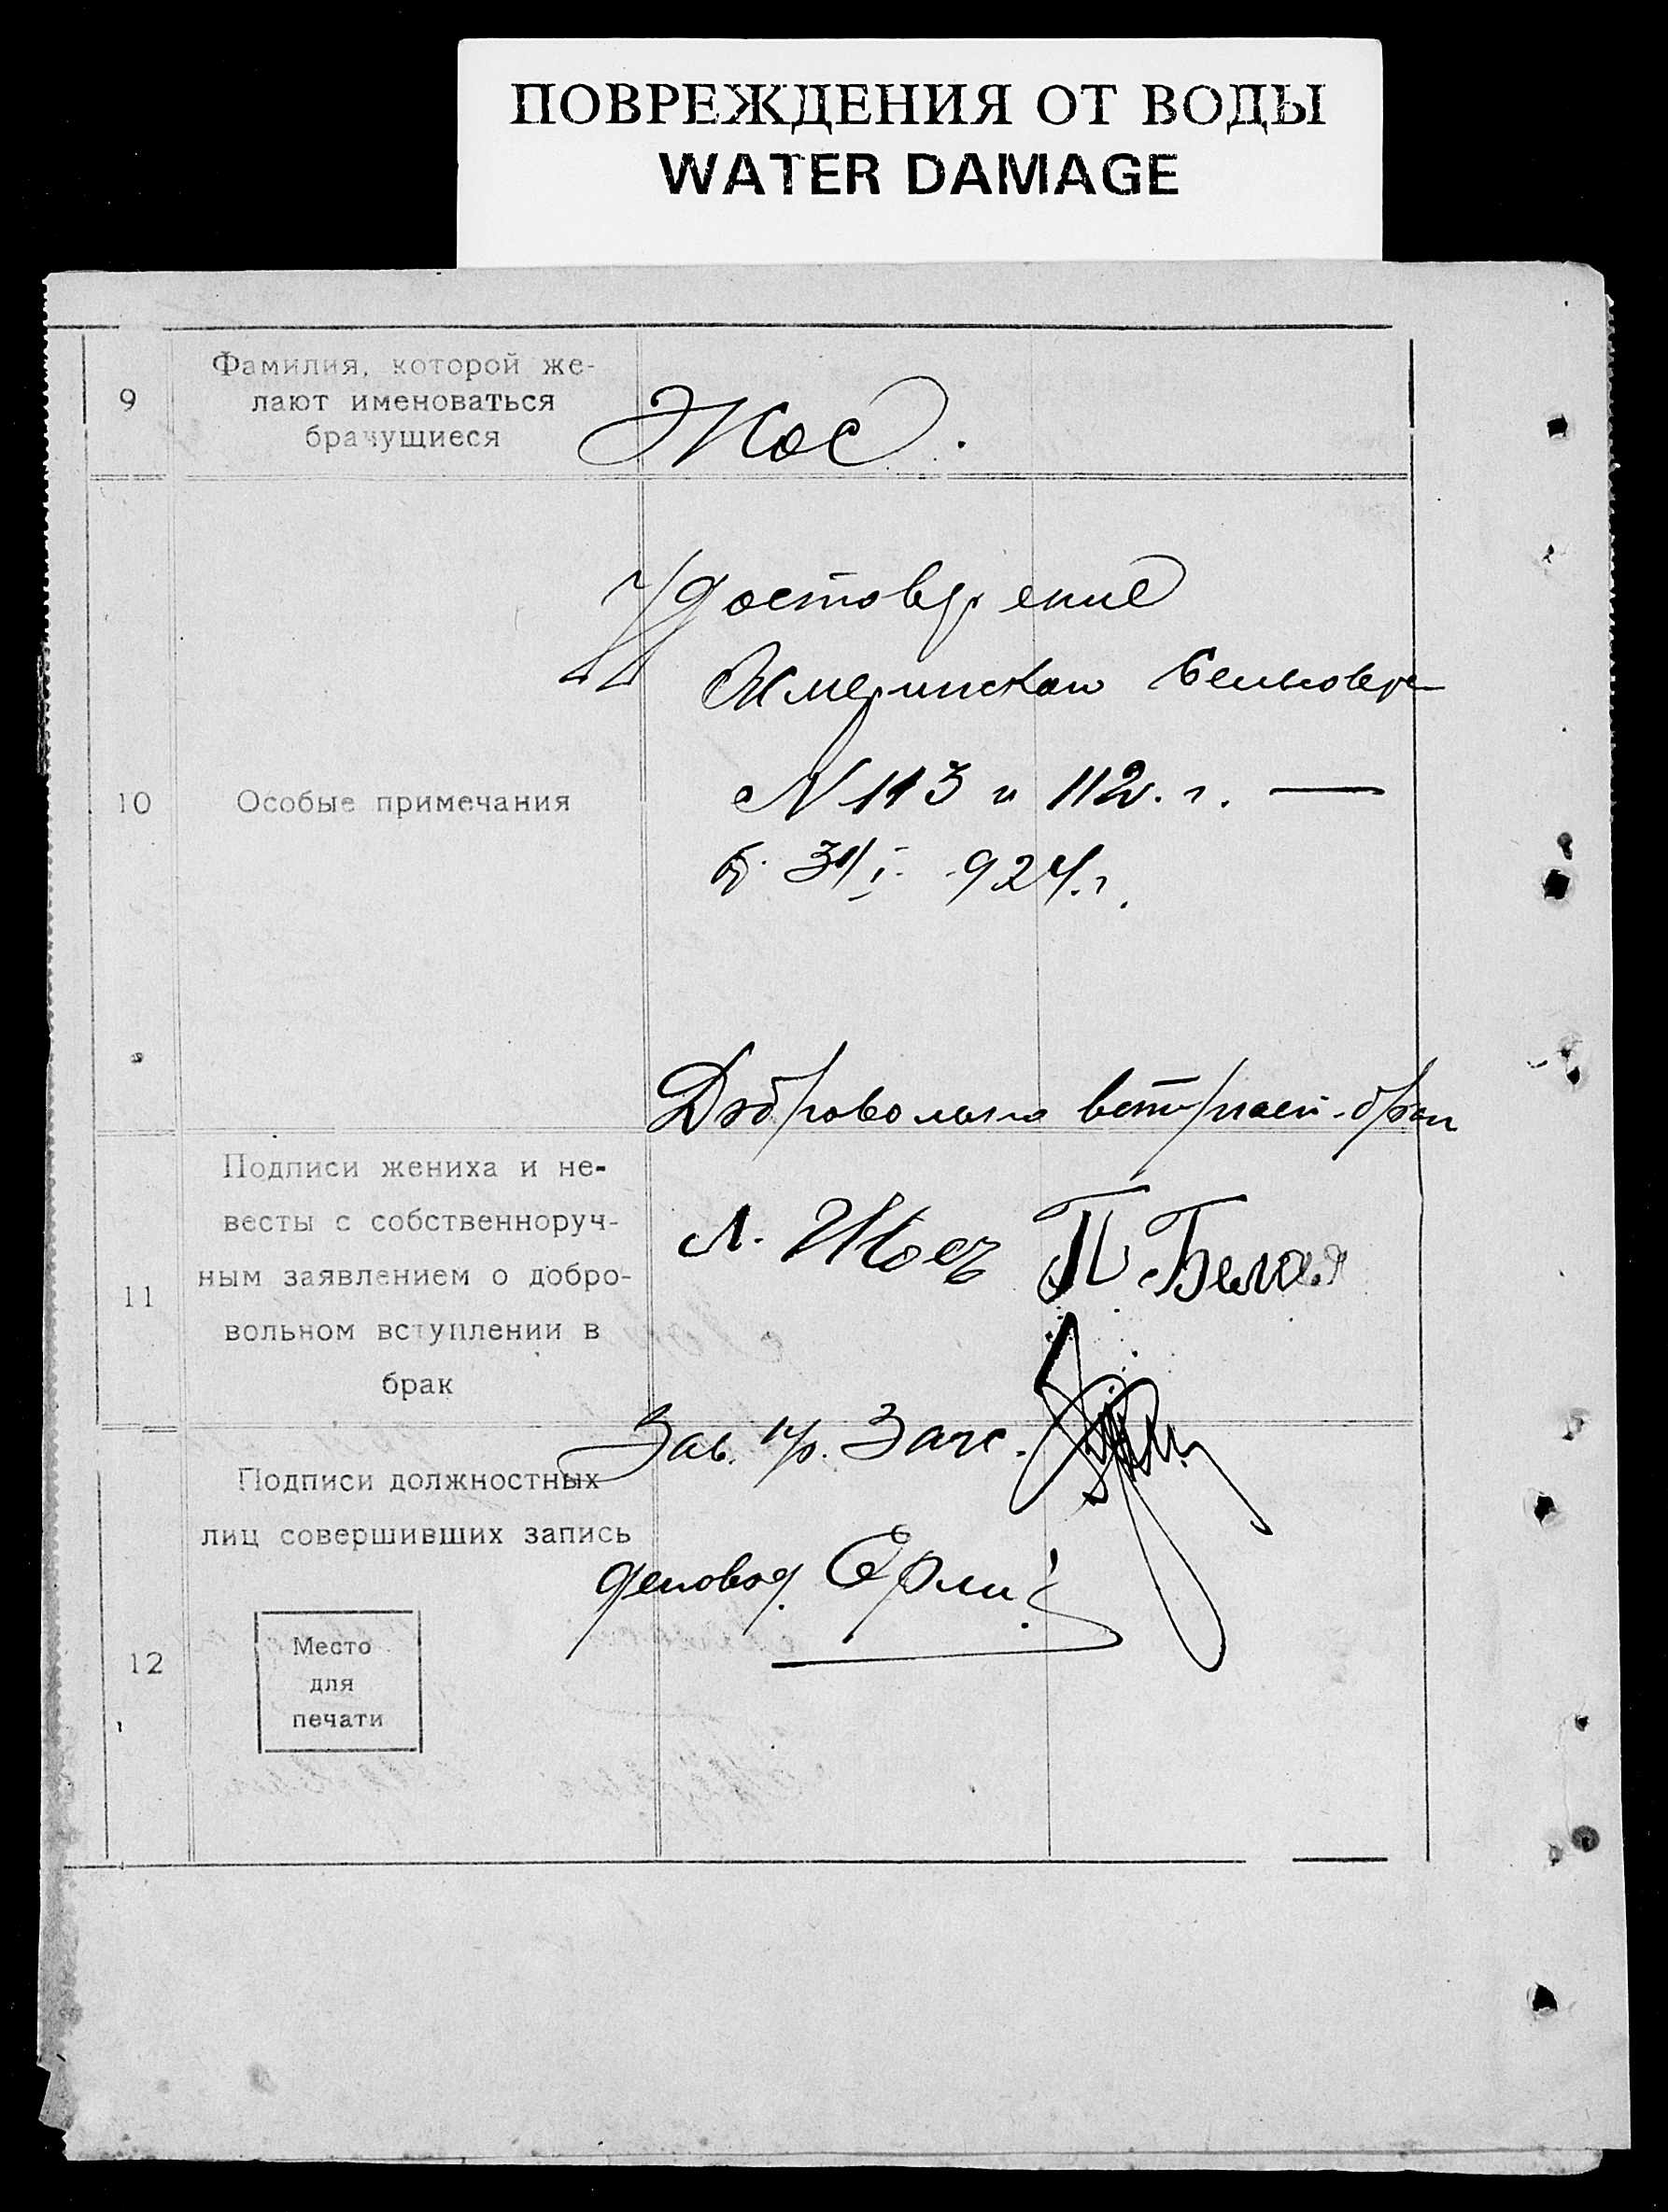 ПОВРЕЖДЕНИЯ ОТ ВОДЫ
WATER DAMAGE
9
Фамилия, которой же-
лают именоваться
брачущиеся
Жос.
10
Особые примечания
Удостоверение
Жмеринской
N 113 и 112. г. —
31/I. 924.г.
Добровольно вступаем брак
11
Подписи жениха и не-
весты с собственноруч-
ным заявлением о добро-
вольном вступлении в
брак
Л. Жосъ П Белая
12
Подписи должностных
лиц совершивших запись
Зав. Загс.
деловод.
Место
для
печати